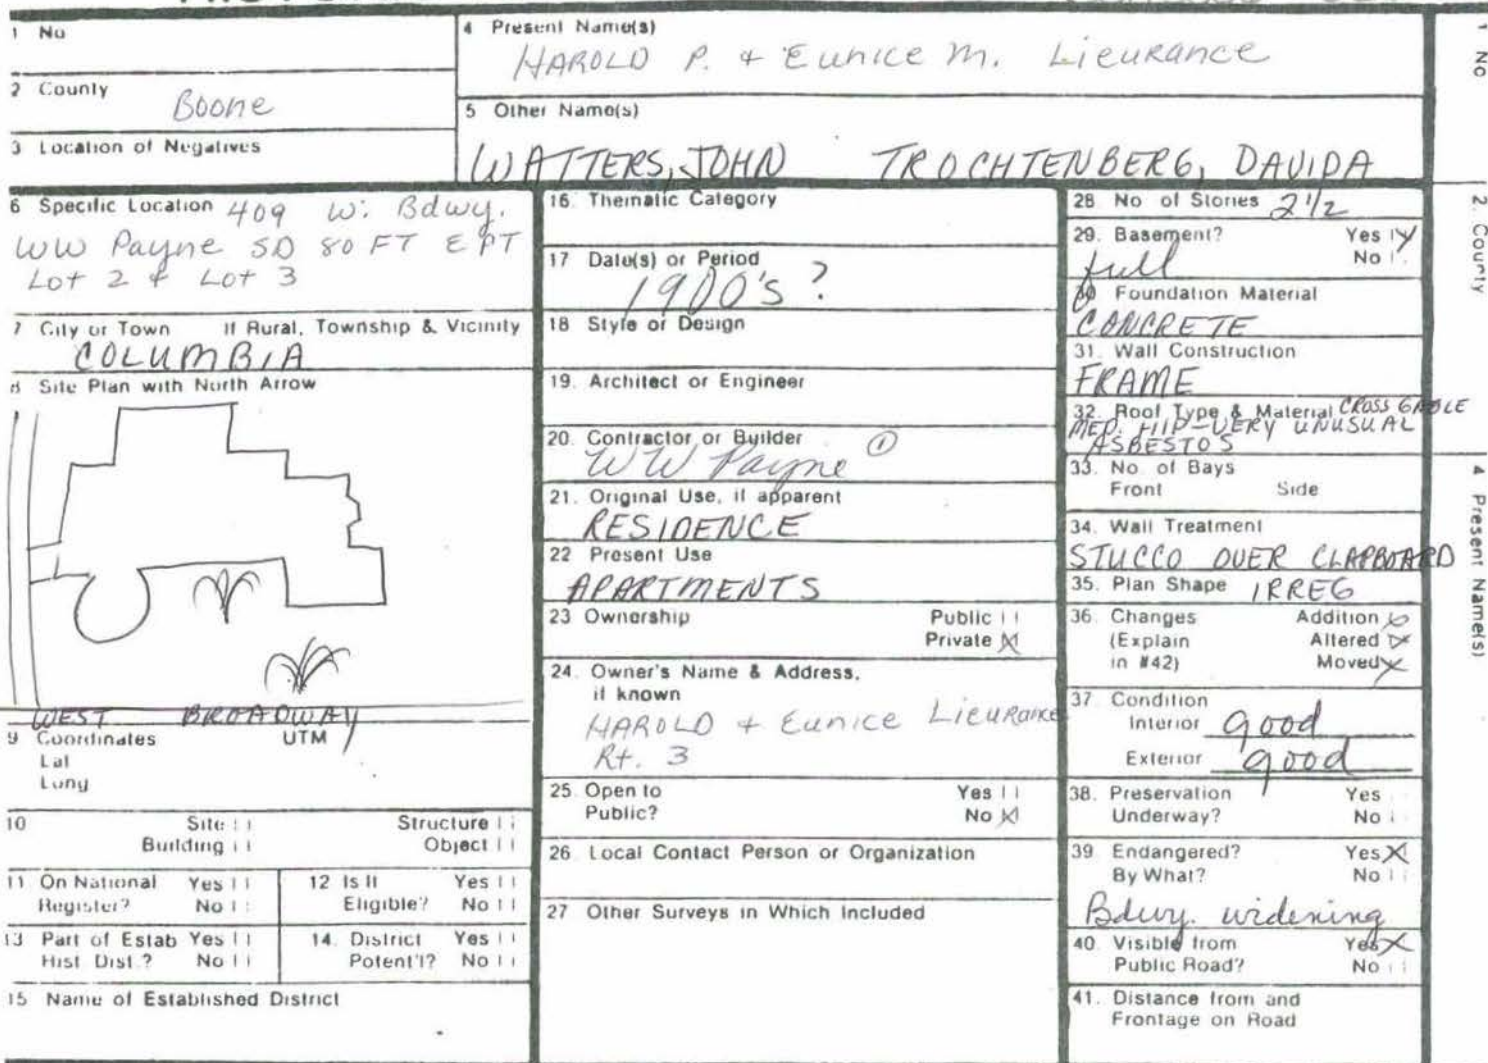 1 No
4 Present Name(s)
HAROLD P. + Eunice M. Lieurance
2 County
Boone
5 Other Name(s)
WATTERS, JOHN TROCHTENBERG, DAVIDA
3 Location of Negatives
6 Specific Location 409 W. Bdwy.
WW Payne SD 80 FT E PT
Lot 2 & Lot 3
7 City or Town If Rural, Township & Vicinity
COLUMBIA
8 Site Plan with North Arrow
WEST BROADWAY
9 Coordinates UTM
Lat
Long
10 Site Structure
Building Object
11 On National Yes
Register? No
12 Is It Yes
Eligible? No
13 Part of Estab Yes
Hist. Dist.? No
14. District Yes
Potent'l? No
15 Name of Established District
16. Thematic Category
17 Date(s) or Period
1900's?
18 Style or Design
19. Architect or Engineer
20. Contractor or Builder
WW Payne ①
21. Original Use, if apparent
RESIDENCE
22 Present Use
APARTMENTS
23 Ownership Public
Private X
24. Owner's Name & Address,
if known
HAROLD + Eunice Lieurance
Rt. 3
25. Open to Yes
Public? No X
26 Local Contact Person or Organization
27 Other Surveys in Which Included
28 No of Stories 2 1/2
29. Basement? Yes
No
full
30 Foundation Material
CONCRETE
31. Wall Construction
FRAME
32. Roof Type & Material CROSS GABLE
MED. HIP-VERY UNUSUAL
ASBESTOS
33. No. of Bays
Front Side
34. Wall Treatment
STUCCO OVER CLAPBOARD
35. Plan Shape IRREG
36. Changes Addition
(Explain Altered
in #42) Moved
37. Condition
Interior good
Exterior good
38. Preservation Yes
Underway? No
39. Endangered? Yes X
By What? No
Bdwy. widening
40. Visible from Yes X
Public Road? No
41. Distance from and
Frontage on Road
1 No
2. County
4 Present Name(s)